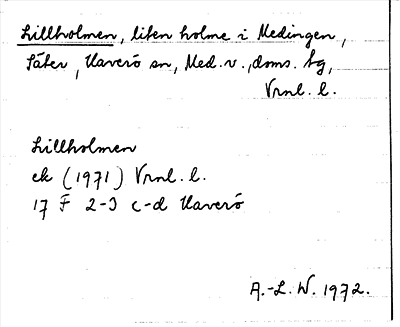 Lillholmen, liten holme i Medingen,
Säter, Haverö sn, Med. v., doms. hg,
Vrnl. l.
Lillholmen
ek (1971) Vrnl. l.
17 F 2-3 c-d Haverö
A.-L. W. 1972.